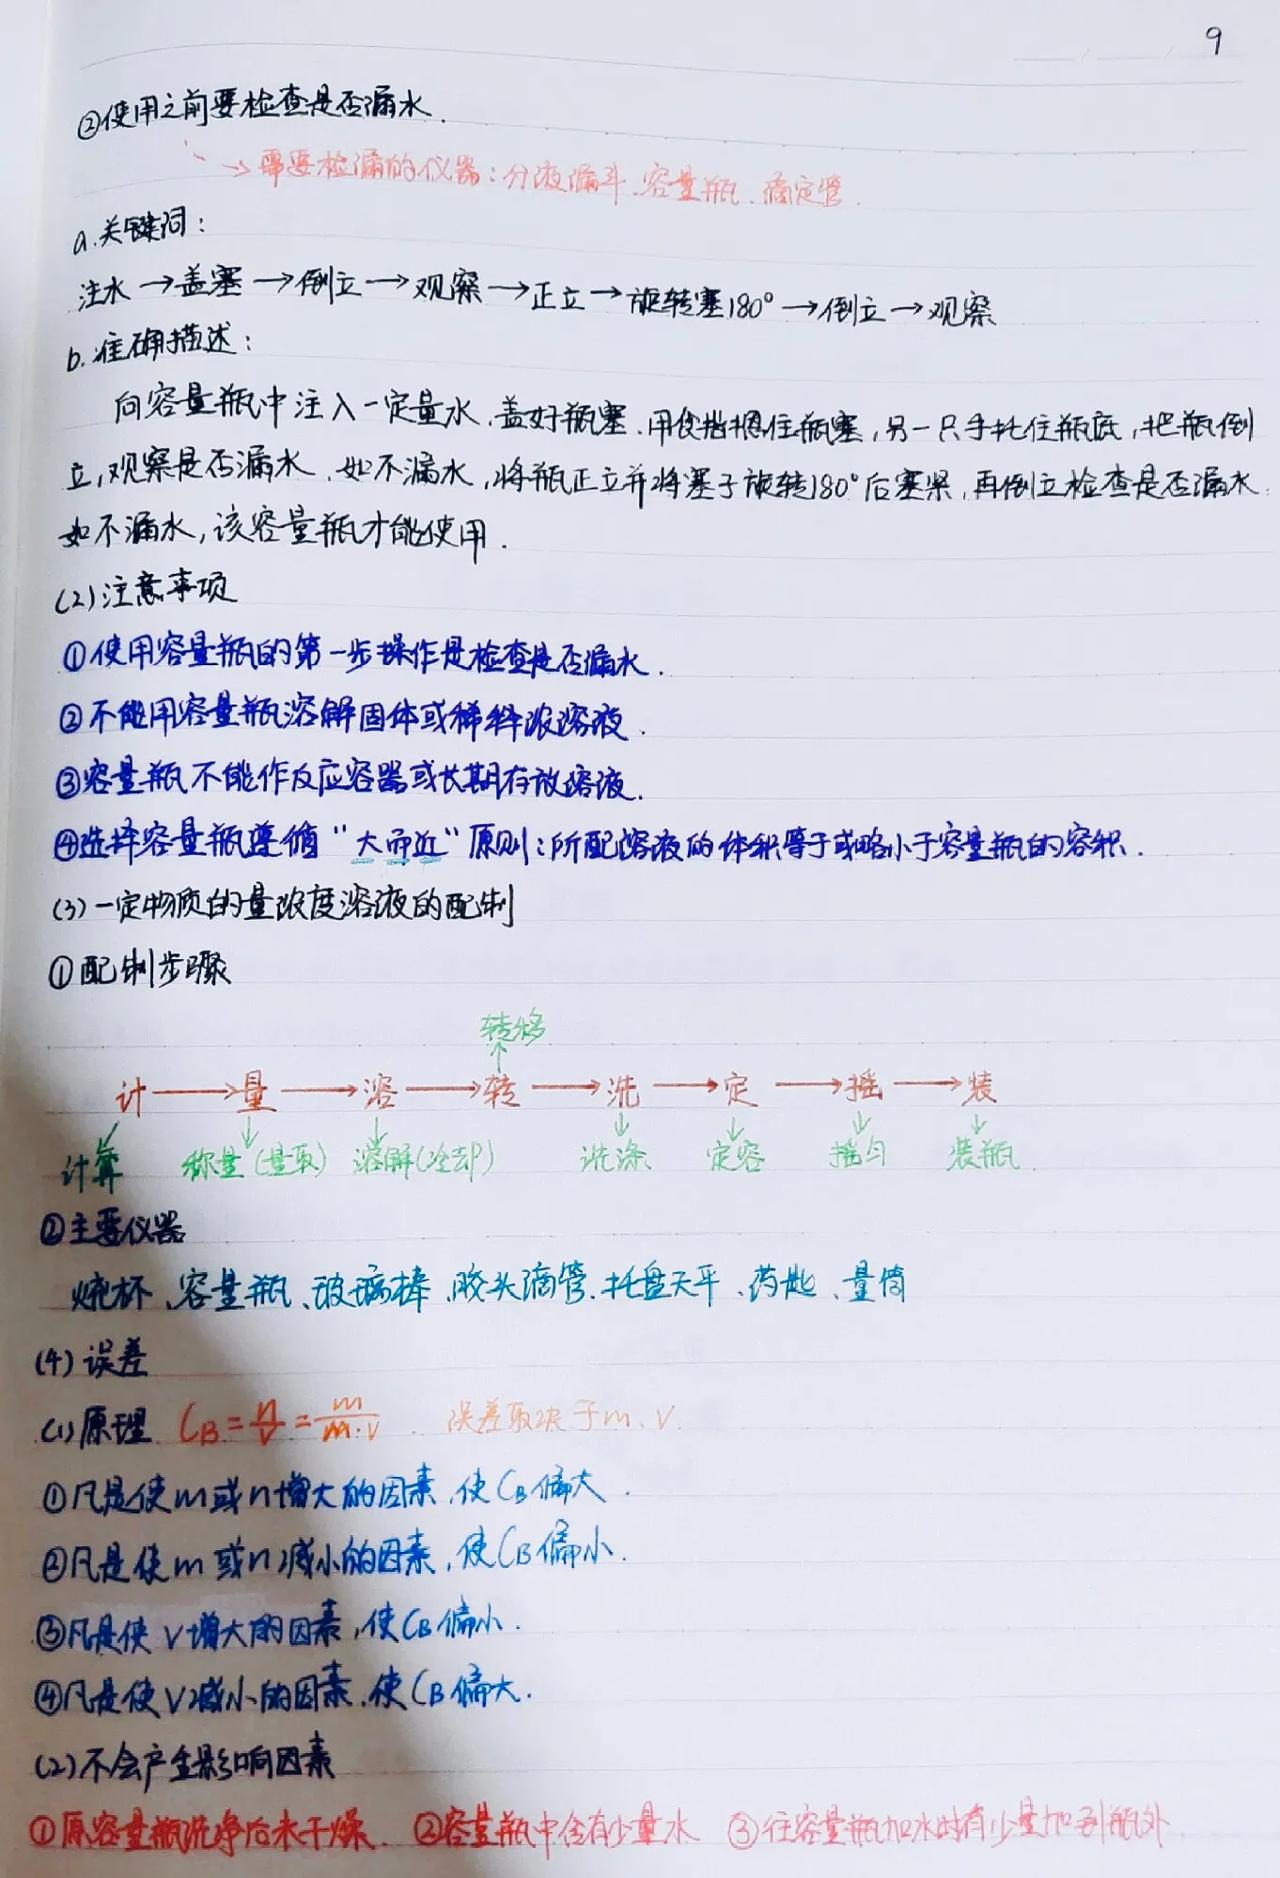 9
②使用之前要检查是否漏水.
→需要检漏的仪器:分液漏斗、容量瓶、滴定管.
a.关键词:
注水→盖塞→倒立→观察→正立→旋转塞180°→倒立→观察
b.准确描述:
向容量瓶中注入一定量水、盖好瓶塞.用食指摁住瓶塞,另一只手托住瓶底,把瓶倒
立,观察是否漏水、如不漏水,将瓶正立并将塞子旋转180°后塞紧,再倒立检查是否漏水.
如不漏水,该容量瓶才能使用.
(2)注意事项
①使用容量瓶的第一步操作是检查是否漏水.
②不能用容量瓶溶解固体或稀释浓溶液.
③容量瓶不能作反应容器或长期存放溶液.
④选择容量瓶遵循"大而近"原则:所配溶液的体积等于或略小于容量瓶的容积.
(3)一定物质的量浓度溶液的配制
①配制步骤
转移
计→量→溶→转→洗→定→摇→装
计算 称量(量取) 溶解(冷却) 洗涤 定容 摇匀 装瓶.
②主要仪器
烧杯、容量瓶、玻璃棒、胶头滴管、托盘天平、药匙、量筒
(4)误差
(1)原理 CB=n/V=m/m·V. 误差取决于m、V.
①凡是使m或n增大的因素,使CB偏大.
②凡是使m或n减小的因素,使CB偏小.
③凡是使V增大的因素,使CB偏小.
④凡是使V减小的因素,使CB偏大.
(2)不会产生影响因素
①原容量瓶洗净后未干燥. ②容量瓶中含有少量水 ③往容量瓶加水时有少量加到瓶外